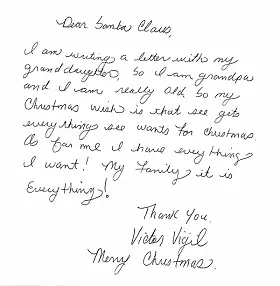 Dear Santa Claus,
I am writing a letter with my
granddaughter, So I am grandpa
and I am really old so my
Christmas wish is that see gets
everything see wants for Christmas.
As for me I have everything
I want! My family it is
Everything!
Thank You.
Victor Vigil
Merry Christmas.